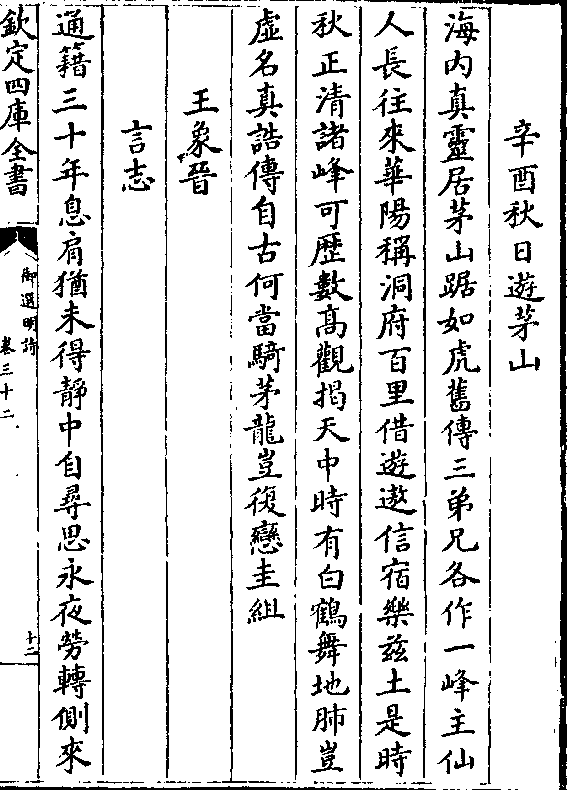 辛酉秋日遊茅山
海内真靈居茅山踞如虎舊傳三弟兄各作一峰主仙
人長往來華陽稱洞府百里借遊遨信宿樂兹土是時
秋正清諸峰可歴數髙觀揭天中時有白鶴舞地肺豈
虚名真誥傳自古何當騎茅龍豈復戀圭組
王象晉
言志
通籍三十年息肩猶未得靜中自尋思永夜勞轉側來
欽定四庫全書
御選明詩
卷三十二
十二